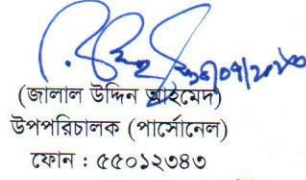 (জালাল উদ্দিন আহমেদ)
উপপরিচালক (পার্সোনেল)
ফোন : ৫৫০১২৩৪৩